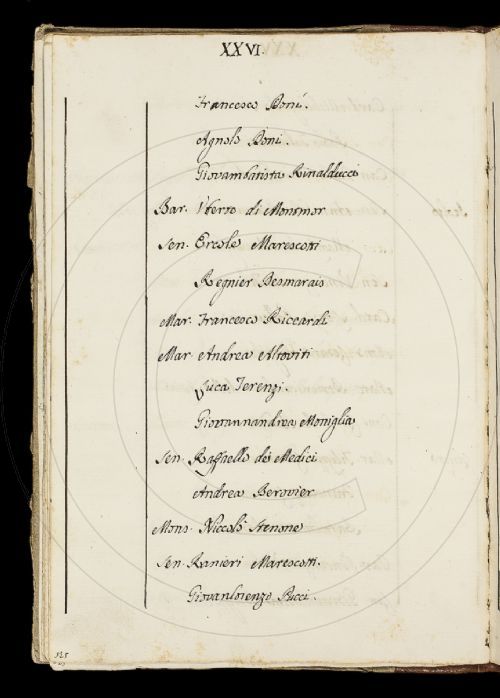 XXVI.
Francesco Boni.
Agnolo Boni.
Giovambatista Rinalducci
Bar. Uberto di Monmor
Sen. Ercole Marescotti
Regnier Desmarais
Mar. Francesco Riccardi
Mar. Andrea Altoviti
Luca Terenzi
Giovannandrea Moniglia
Sen. Raffaello de Medici
Andrea Berovier
Mons. Niccolò Stenone
Sen. Ranieri Marescotti.
Giovanlorenzo Pucci.